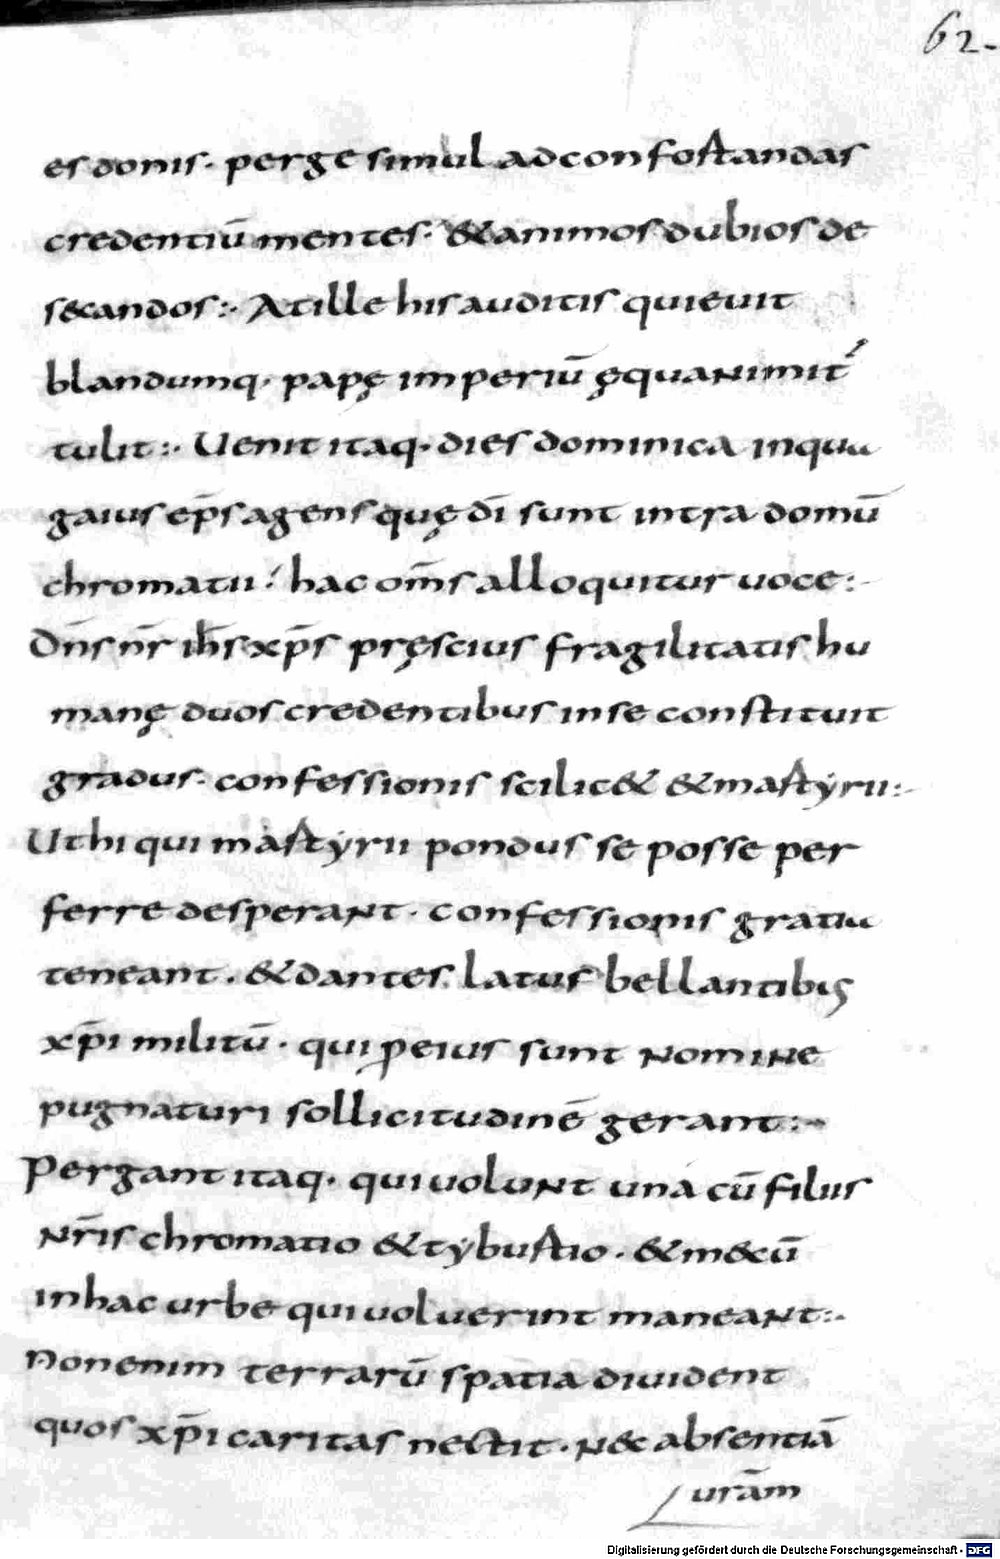 62.
es donis· perge simul ad confortandas
credentiū mentes· &animos dubios de
s&candos:· At ille his auditis quieuit
blandumq· papę imperiū ęquanimit̄
tulit:· Uenit itaq· dies dominica inqua
gaius ep̄s agens quę dī sunt intra domū
chromatii! hac om̄s alloquitur uoce:·
Dn̄s nr̄ ih̄s xp̄s pręscius fragilitatis hu
manę duos credentibus inse constituit
gradus· confessionis scilic& &martẏrii:·
Ut hi qui martẏrii pondus se posse per
ferre desperant· confessionis gratia
teneant· &dantes latus bellantibus
xp̄i militū· qui ꝓ eius sunt nomine
pugnaturi sollicitudinē gerant:·
Pergant itaq· qui uolunt una cū filiis
nr̄is chromatio &tẏburtio· &m&cū
inhac urbe qui uoluerint maneant:·
Non enim terrarū spatia diuident
quos xp̄i caritas nectit· N&c absentiā
urām
Digitalisierung gefördert durch die Deutsche Forschungsgemeinschaft - DFG